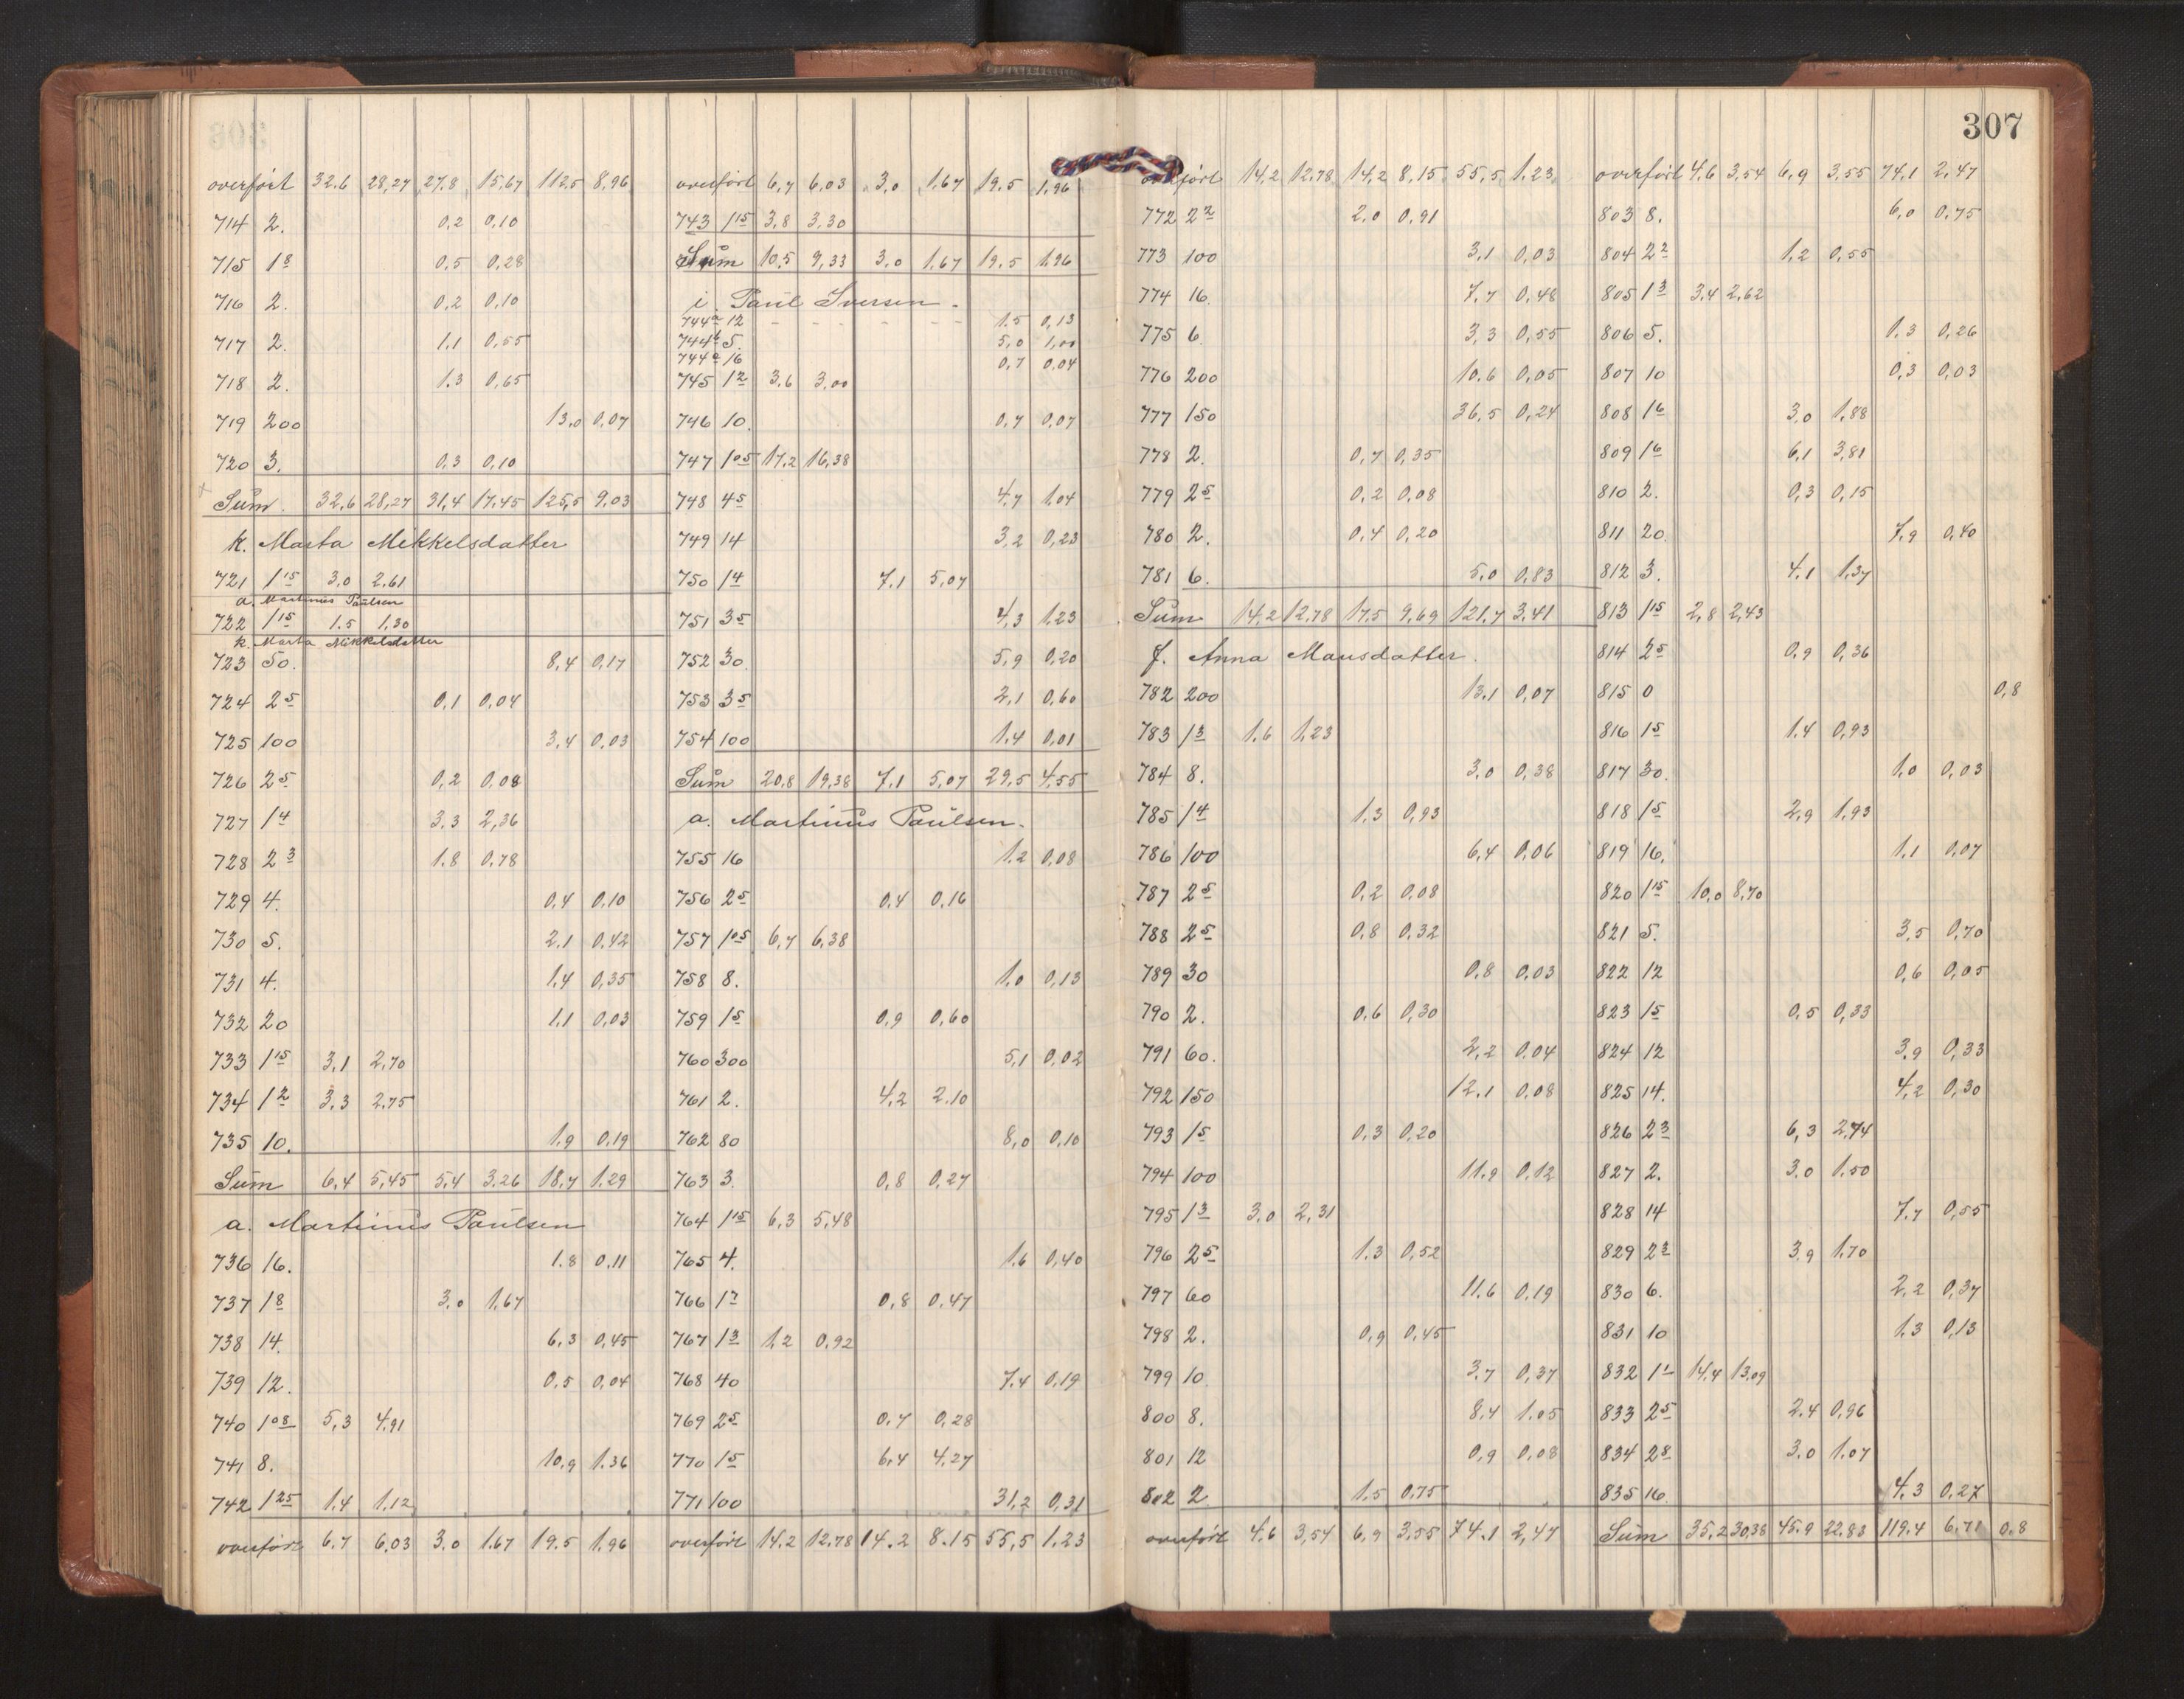 307
overført 32.6 28,27 27,8 15,67 112,5 8,96
714 2. 0,2 0,10
715 1⁸ 0,5 0,28
716 2. 0,2 0,10
717 2. 1.1 0,55
718 2. 1.3 0,65
719 200 13,0 0,07
720 3. 0,3 0,10
Sum. 32,6 28,27 31,4 17,45 125,5 9,03
k. Marta Mikkelsdatter
721 1¹⁵ 3,0 2,61
a. Martinus Paulsen
722 1¹⁵ 1.5 1,30
k. Marta Mikkelsdatter
723 50. 8,4 0,17
724 2⁵ 0,1 0,04
725 100 3,4 0,03
726 2⁵ 0,2 0,08
727 1⁴ 3,3 2,36
728 2³ 1.8 0,78
729 4. 0,4 0,10
730 5. 2,1 0,42
731 4. 1,4 0,35
732 20 1,1 0,03
733 1¹⁵ 3,1 2,70
734 1² 3,3 2,75
735 10. 1,9 0,19
Sum 6,4 5,45 5,4 3,26 18,7 1.29
a. Martinus Paulsen
736 16. 1.8 0,11
737 1⁸ 3,0 1,67
738 14. 6,3 0,45
739 12. 0,5 0,04
740 1⁰⁸ 5,3 4,91
741 8. 10,9 1.36
742 1²⁵ 1.4 1.12
overført 6,7 6,03 3,0 1.67 19.5 1,96
overført 6,7 6,03 3,0 1,67 19.5 1,96
743 1¹⁵ 3,8 3,30
Sum 10,5 9,33 3,0 1,67 19,5 1,96
i. Paul Iversen.
744ª 12 - - - - - - 1.5 0,13
744ᵇ 5. 5,0 1,00
744ᶜ 16 0,7 0,04
745 1² 3,6 3,00
746 10. 0,7 0,07
747 1⁰⁵ 17,2 16,38
748 4⁵ 4,7 1,04
749 14 3,2 0,23
750 1⁴ 7,1 5,07
751 3⁵ 4,3 1,23
752 30. 5,9 0,20
753 3⁵ 2,1 0,60
754 100 1,4 0,01
Sum 20,8 19,38 7,1 5,07 29,5 4,55
a. Martinus Paulsen.
755 16 1,2 0,08
756 2⁵ 0,4 0,16
757 1⁰⁵ 6,7 6,38
758 8. 1,0 0,13
759 1⁵ 0,9 0,60
760 300 5,1 0,02
761 2. 4,2 2.10
762 80 8,0 0,10
763 3. 0,8 0,27
764 1¹⁵ 6,3 5,48
765 4. 1,6 0,40
766 1⁷ 0,8 0,47
767 1³ 1,2 0,92
768 40 7,4 0,19
769 2⁵ 0,7 0,28
770 1⁵ 6,4 4,27
771 100 31,2 0,31
overført 14,2 12,78 14,2 8,15 55,5 1,23
overført 14,2 12,78 14,2 8,15 55,5 1,23
772 2² 2,0 0,91
773 100 3,1 0,03
774 16. 7,7 0,48
775 6 3,3 0,55
776 200 10.6 0,05
777 150 36,5 0,24
778 2. 0,7 0,35
779 2⁵ 0,2 0,08
780 2. 0,4 0,20
781 6. 5,0 0,83
Sum 14,2 12,78 17,5 9,69 121,7 3,41
f. Anna Mausdatter.
782 200 13,1 0,07
783 1³ 1.6 1,23
784 8. 3,0 0,38
785 1⁴ 1.3 0,93
786 100 6,4 0,06
787 2⁵ 0,2 0,08
788 2⁵ 0,8 0,32
789 30 0,8 0,03
790 2. 0,6 0,30
791 60. 2,2 0,04
792 150 12.1 0,08
793 1⁵ 0,3 0,20
794 100 11.9 0,12
795 1³ 3,0 2,31
796 2⁵ 1.3 0,52
797 60 11.6 0,19
798 2. 0,9 0,45
799 10 3,7 0,37
800 8. 8,4 1,05
801 12 0,9 0,08
802 2 1,5 0,75
overført 4,6 3,54 6,9 3,55 74,1 2,47
overført 4,6 3,54 6,9 3,55 74,1 2,47
803 8. 6,0 0,75
804 2² 1,2 0,55
805 1³ 3,4 2,62
806 5. 1.3 0,26
807 10 0,3 0,03
808 1⁶ 3,0 1,88
809 1⁶ 6,1 3,81
810 2. 0,3 0,15
811 20. 7,9 0,40
812 3. 4,1 1,37
813 1¹⁵ 2,8 2,43
814 2⁵ 0,9 0,36
815 0 0,8
816 1⁵ 1.4 0,93
817 30. 1,0 0,03
818 1⁵ 2,9 1,93
819 16. 1,1 0,07
820 1¹⁵ 10,0 8,70
821 5. 3,5 0,70
822 12 0,6 0,05
823 1⁵ 0,5 0,33
824 12 3,9 0,33
825 14. 4,2 0,30
826 2³ 6,3 2,74
827 2. 3,0 1,50
828 14 7,7 0,55
829 2³ 3,9 1,70
830 6. 2,2 0,37
831 10 1.3 0,13
832 1¹ 14,4 13,09
833 2⁵ 2,4 0,96
834 2⁸ 3,0 1,07
835 16 4,3 0,27
Sum 35,2 30,38 45,9 22,83 119,4 6,71 0,8